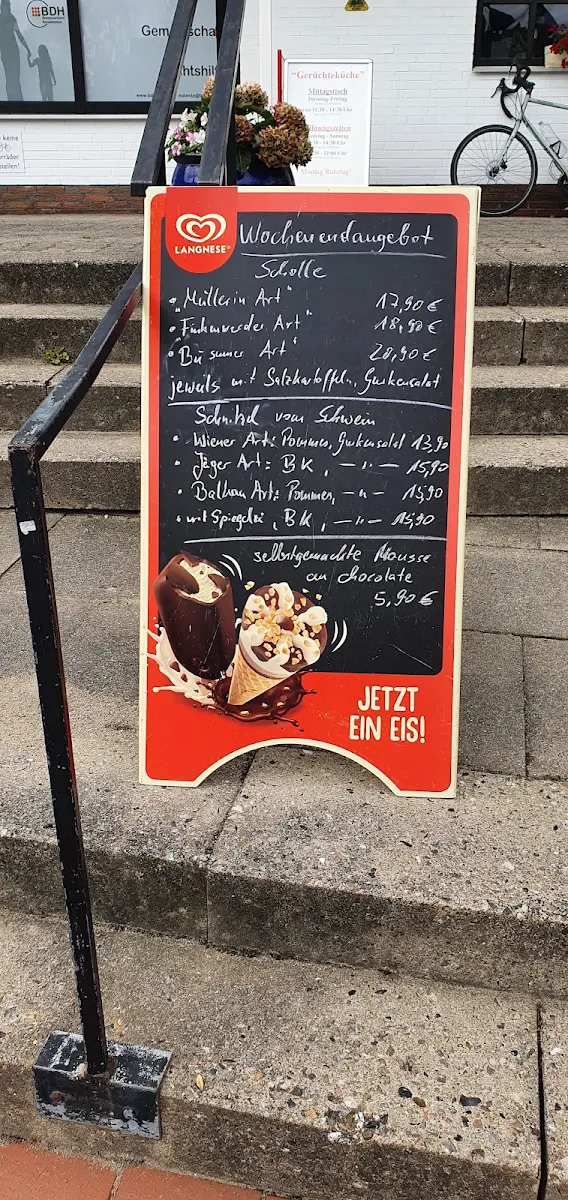 BDH
Gemeinscha
htshilf
"Gerüchteküche"
Mittagstisch
Dienstag-Freitag
Montag Ruhetag!
keine
LANGNESE
Wochenendangebot
Scholle
• "Müllerin Art" 17,90 €
• Finkenwerder Art" 18,90 €
• Büsumer Art" 20,90 €
jeweils mit Salzkartoffeln, Gurkensalat
Schnitzel vom Schwein
• Wiener Art: Pommes, Gurkensalat 13,90
• Jäger Art: BK, —"— 15,90
• Balkan Art: Pommes, —"— 15,90
• mit Spiegelei, BK, —"— 15,90
selbstgemachte Mousse
au chocolate
5,90 €
JETZT
EIN EIS!